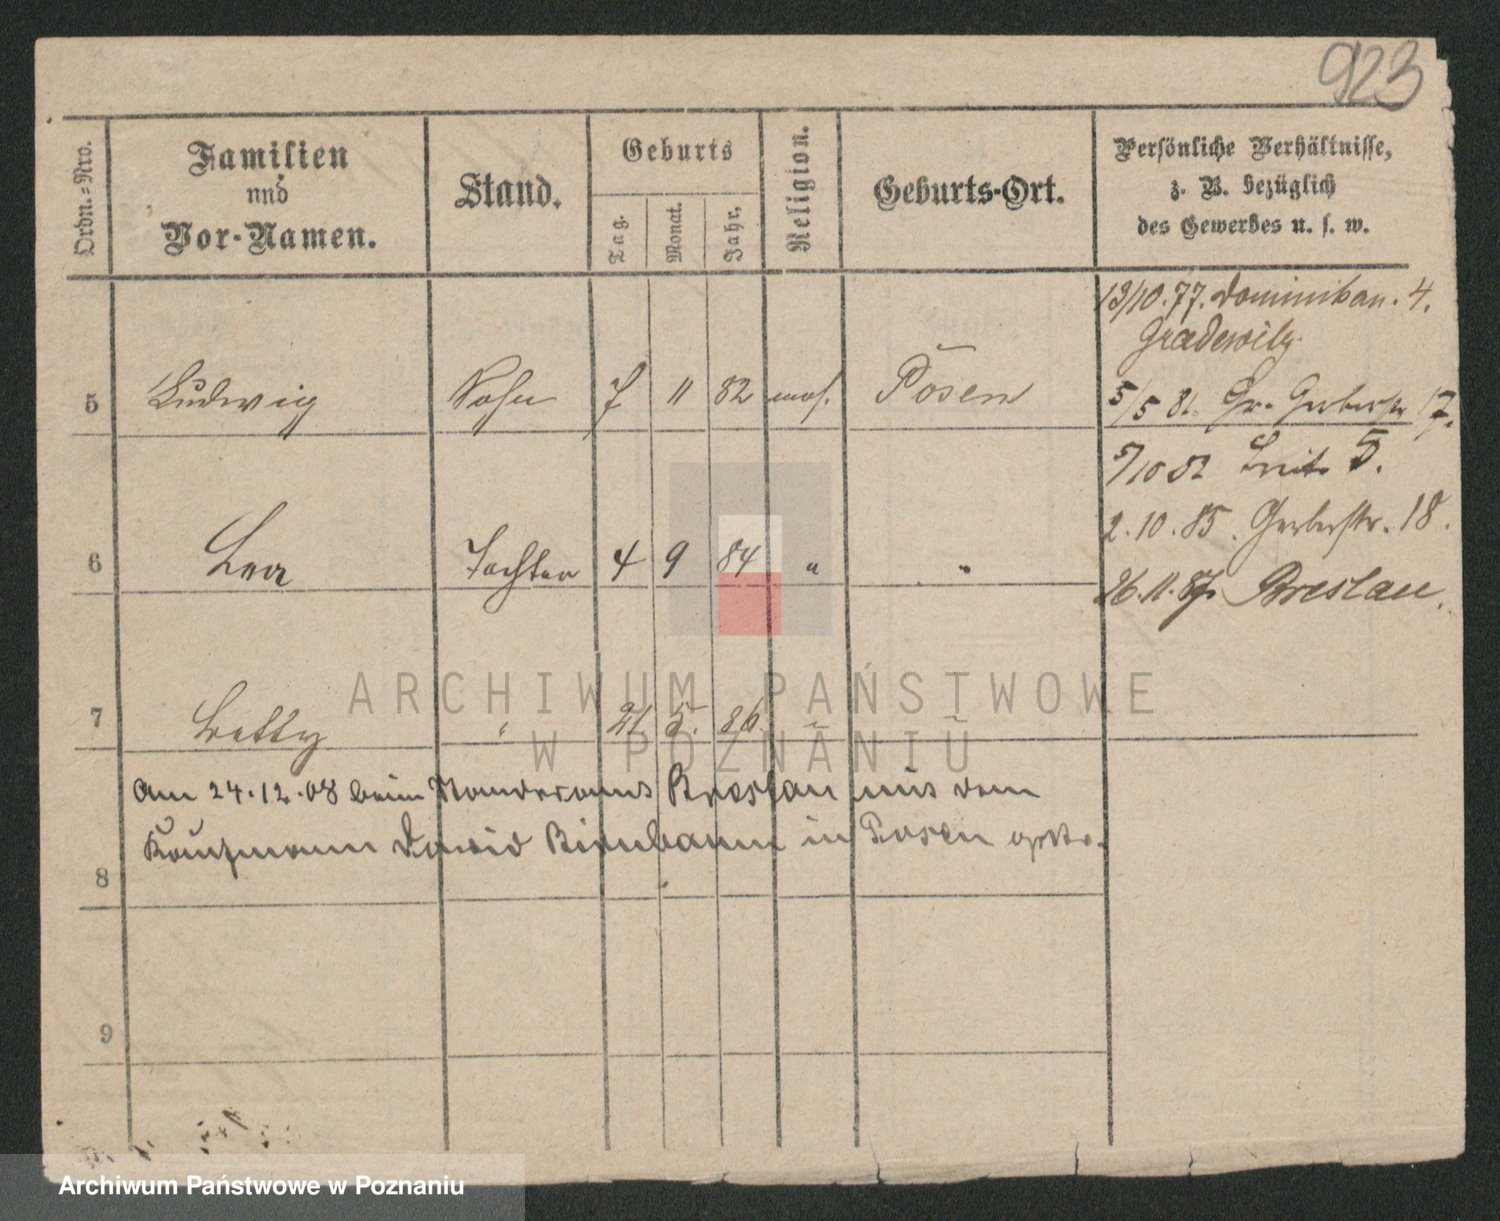 923
Ordn.=Nro.
Familien
und
Vor-Namen.
Stand.
Geburts
Tag.
Monat.
Jahr.
Religion.
Geburts-Ort.
Persönliche Verhältnisse,
z. B. bezüglich
des Gewerbes u. s. w.
13/10.77. Dominikan. 4.
5 Ludwig Sohn 7 11 82 mos. Posen
5/5 81. Gr. Gerberstr 17.
5/10 82 5.
6 Lea Tochter 4 9 84 " "
2.10.85. Gerberstr. 18.
26.11.87. Breslau.
7 Betty " 21 5. 86. "
Am 24.12.08 beim Standesamt Breslau mit dem
Kaufmann David Birnbaum in Posen
8
9
ARCHIWUM PAŃSTWOWE
W POZNANIU
Archiwum Państwowe w Poznaniu